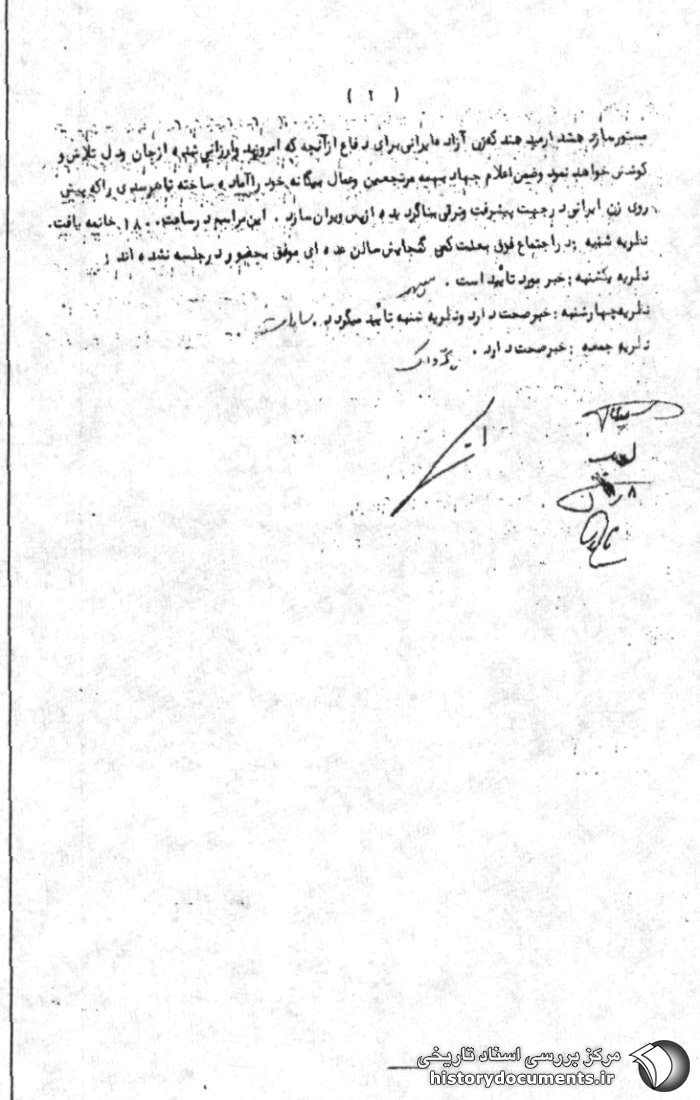 ( ٢ )
مستور سازد هشدار میدهند که زن آزاده ایرانی برای دفاع از آنچه که امروزه وارزانی شده از جان و دل تلاش و
کوشش خواهد نمود وضمن اعلام جهاد علیه مرتجعین وعمال بیگانه خود را آماده ساخته تا هر سدی را که پیش
روی زن ایرانی در جهت پیشرفت وترقی بناگردیده از بن ویران سازد . این مراسم در ساعت ١٨٠٠ خاتمه یافت.
نظریه شنبه : در اجتماع فوق بعلت کمی گنجایش سالن عده ای موفق بحضور در جلسه نشده اند .
نظریه یکشنبه : خبر مورد تائید است . سپهر
نظریه چهارشنبه : خبر صحت دارد ونظریه شنبه تائید میگردد .
نظریه جمعه : خبر صحت دارد .
مرکز بررسی اسناد تاریخی
historydocuments.ir